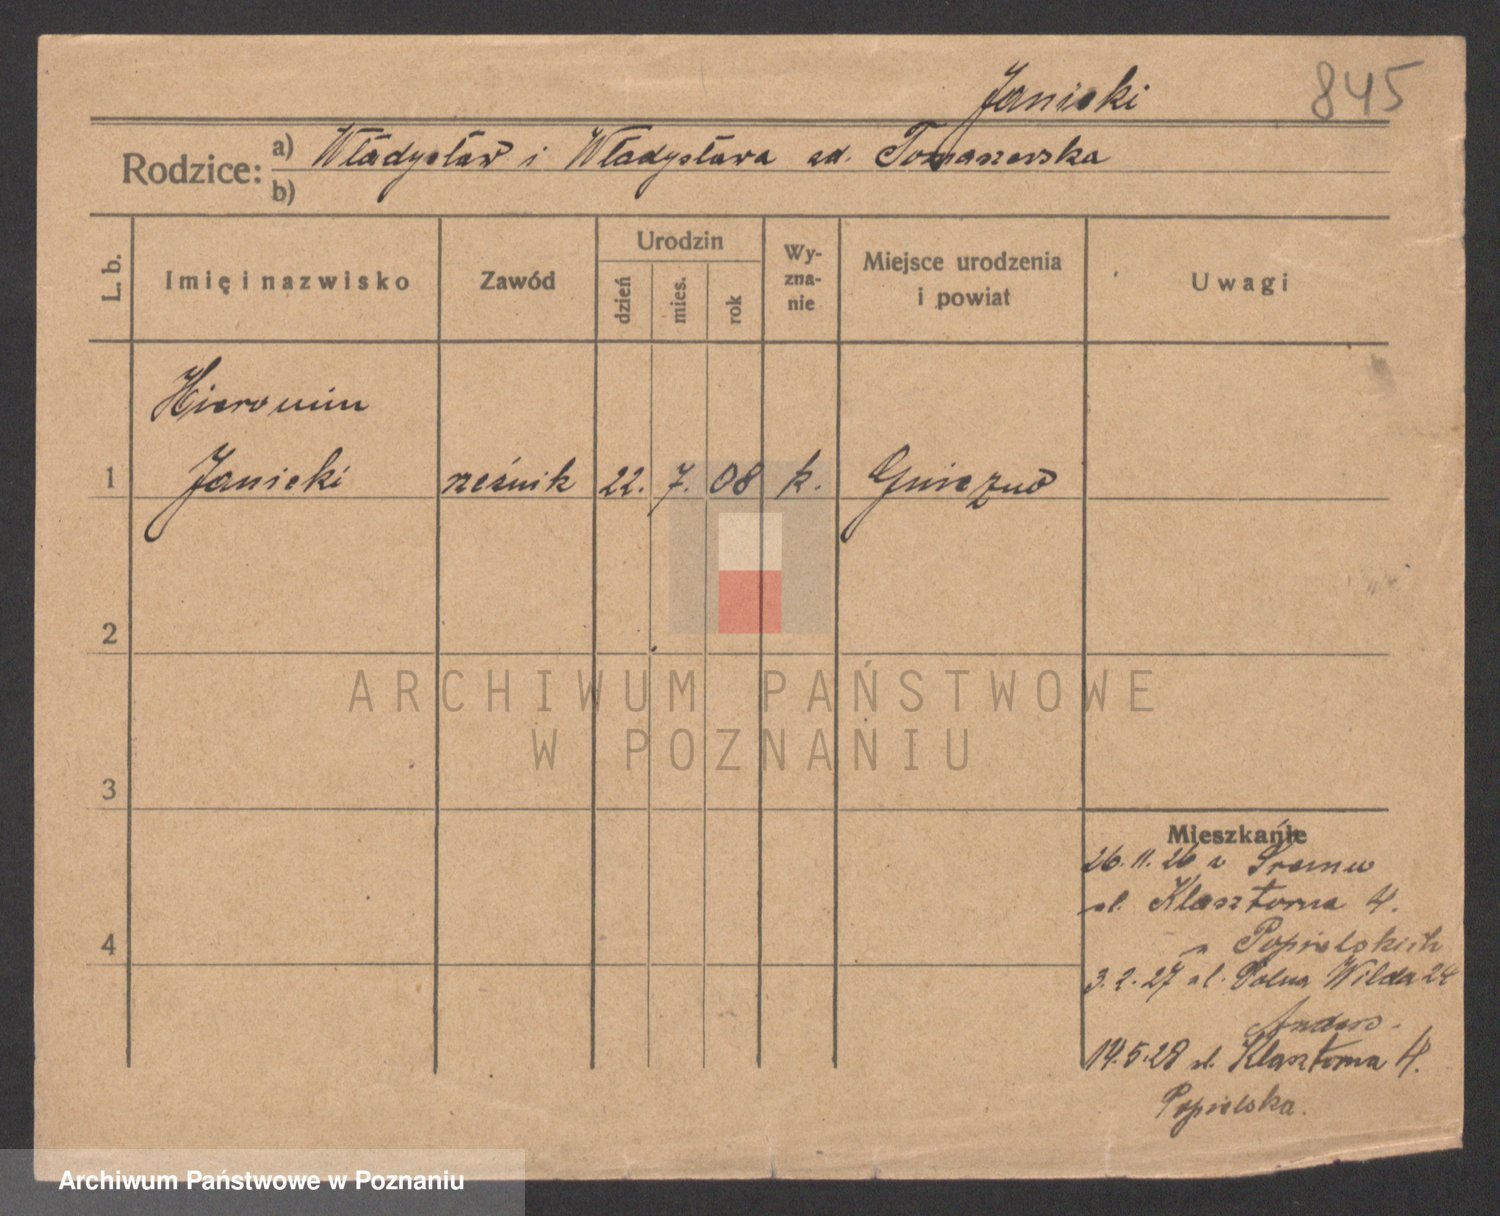 Janicki 845
Rodzice: a) Władysław i Władysława zd. Tomaszewska
b)
L. b. Imię i nazwisko Zawód Urodzin dzień mies. rok Wy-zna-nie Miejsce urodzenia i powiat Uwagi
Hieronim
1 Janicki rzeźnik 22. 7. 08 k. Gniezno
2
ARCHIWUM PAŃSTWOWE
W POZNANIU
3
Mieszkanie
26.11.26 z Śremu
ul. Klasztorna 4.
Popielskich
4
3.2.27 ul. Polna Wilda 24
Anders.
14.5.28 ul. Klasztorna 4.
Popielska.
Archiwum Państwowe w Poznaniu